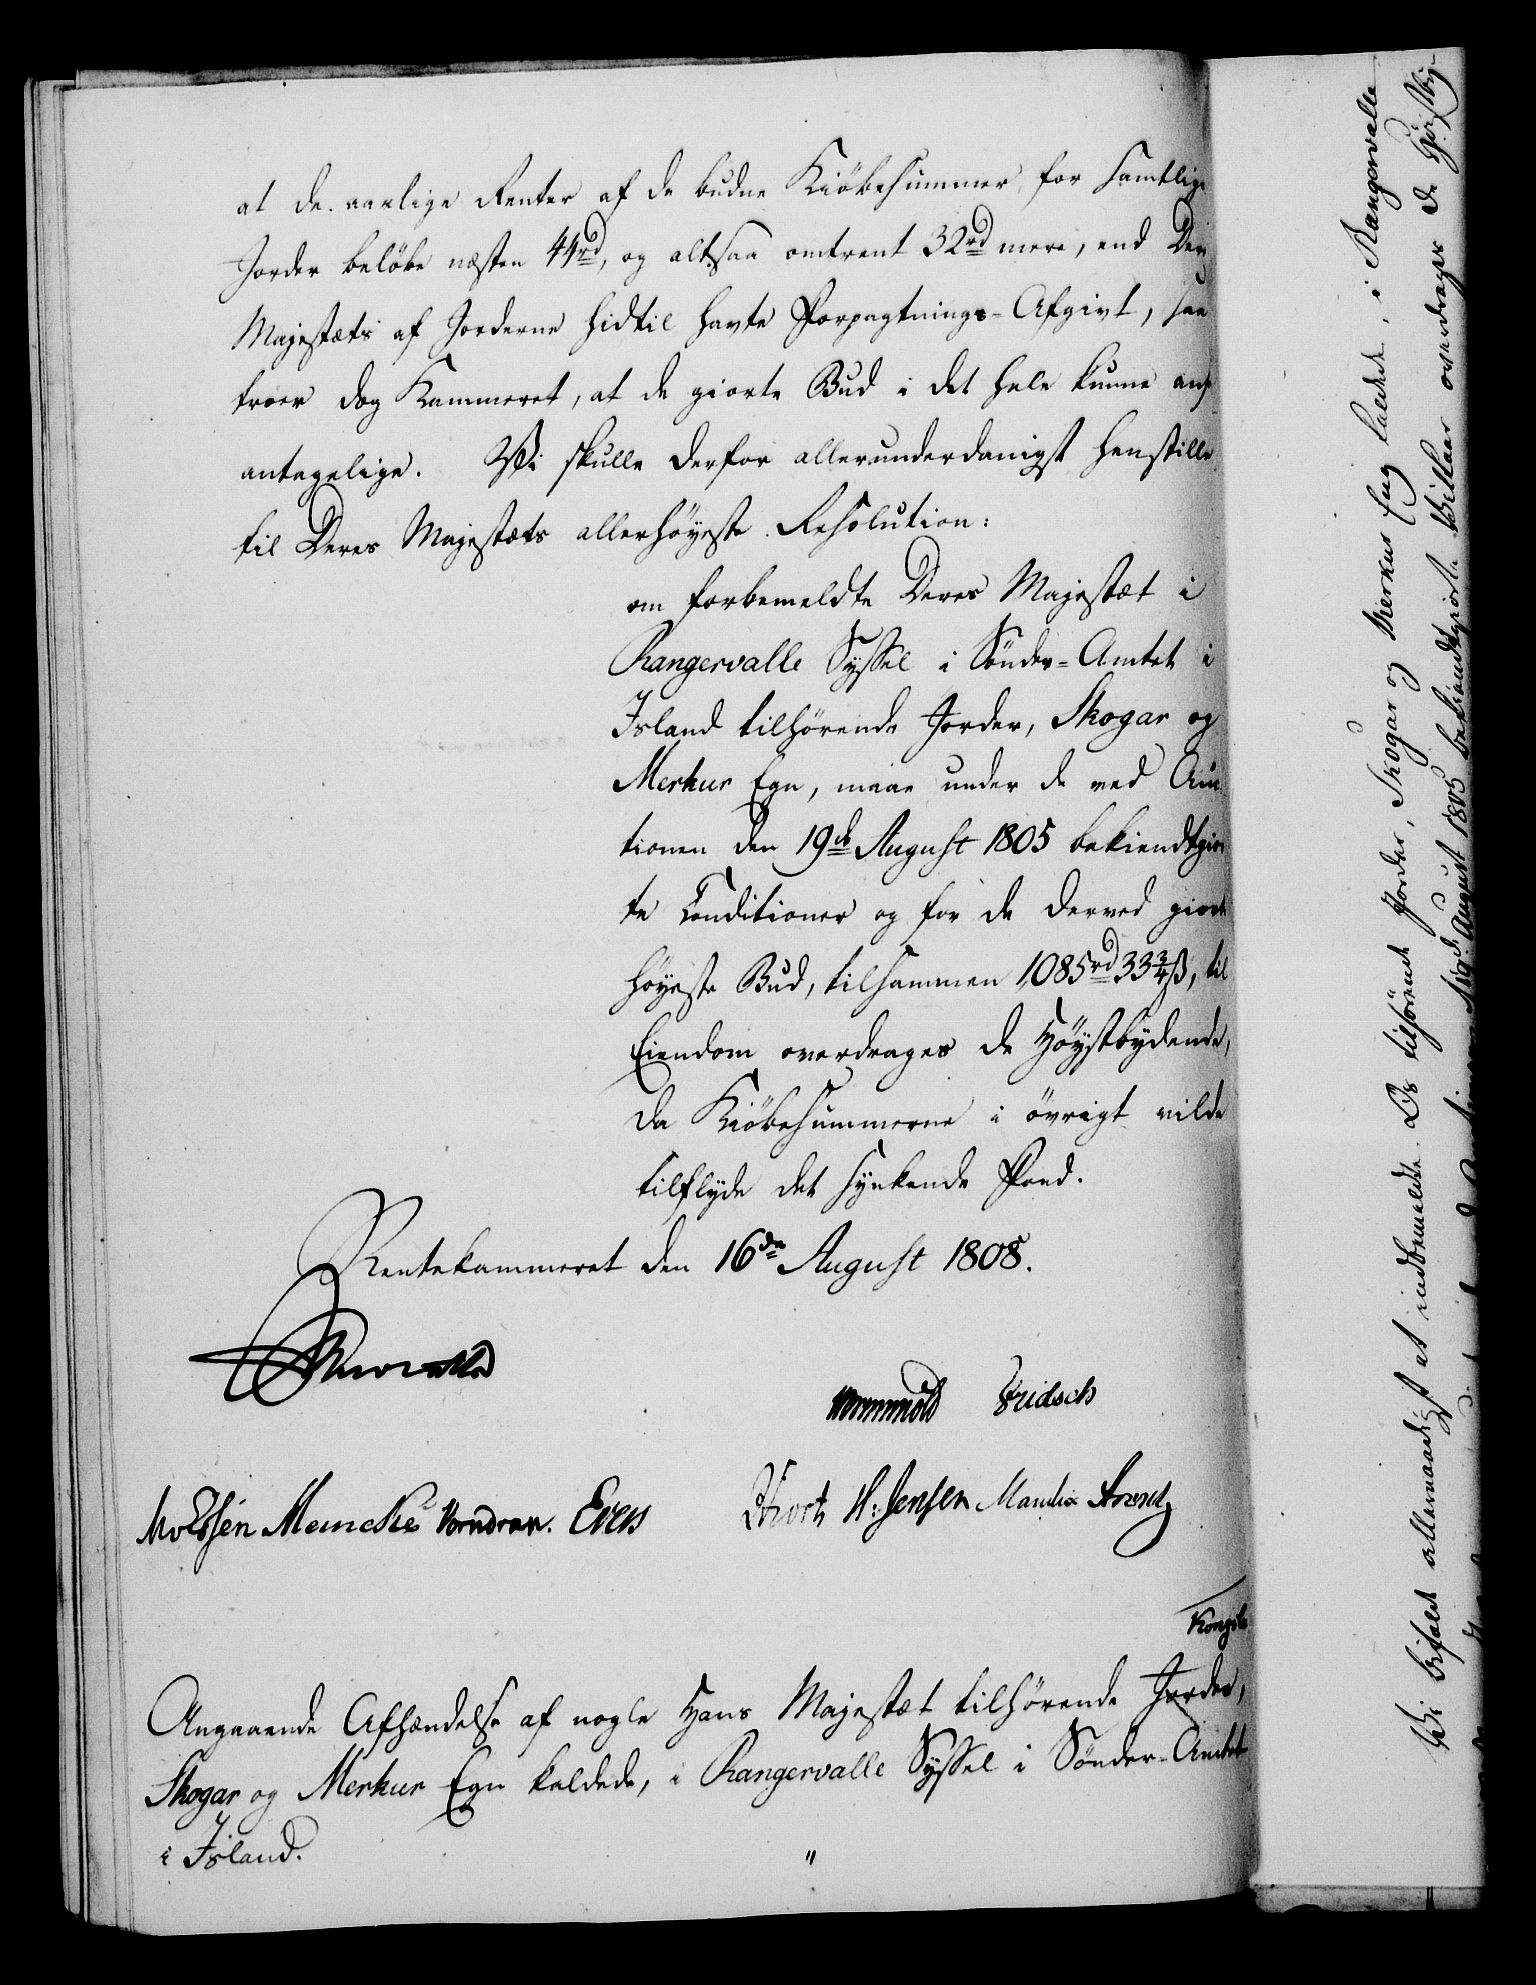 at de aarlige Renter af de budne Kiöbesummer for samtlige
Jorder beløbe næsten 44rd, og altsaa omtrent 32rd mere, end Deres
Majestæts af Jorderne hidtil havte Forpagtnings-Afgivt, saa
troer dog Kammeret, at de giorte Bud i det hele kunne ans
antagelige. Vi skulle derfor allerunderdanigst henstille
til Deres Majestæts allerhöyeste Resolution:
om forbemeldte Deres Majestæt i
Rangervalle Syssel i Sönder-Amtet i
Island tilhörende Jorder, Skogar og
Merkur Egn, maae under de ved Auc
tionen den 19de August 1805 bekiendtgior
te Conditioner og for de derved giorte
höyeste Bud, tilsammen 1085rd 33¾ß, til
Eiendom overdrages de Höystbydende,
da Kiöbesummerne i övrigt vilde
tilflyde det synkende Fond.
Rentekammeret den 16de August 1808.
Wormskiold Fridsch
MvEssen Meincke Vorndran. Evers H: Jensen Manthey Arentz
Kongel.
Angaaende Afhændelse af nogle Hans Majestæt tilhörende Jorder,
Skogar og Merkur Egn kaldede, i Rangervalle Syssel i Sönder-Amtet
i Island. "
Vi bifalde allernaadigst at indbemeldte Os tilhörende Jorder, Skogar og Merkur Eng kaldede, i Rangervalle
August 1805 bekiendtgiorte Vilkaar overdrages de Höystby-